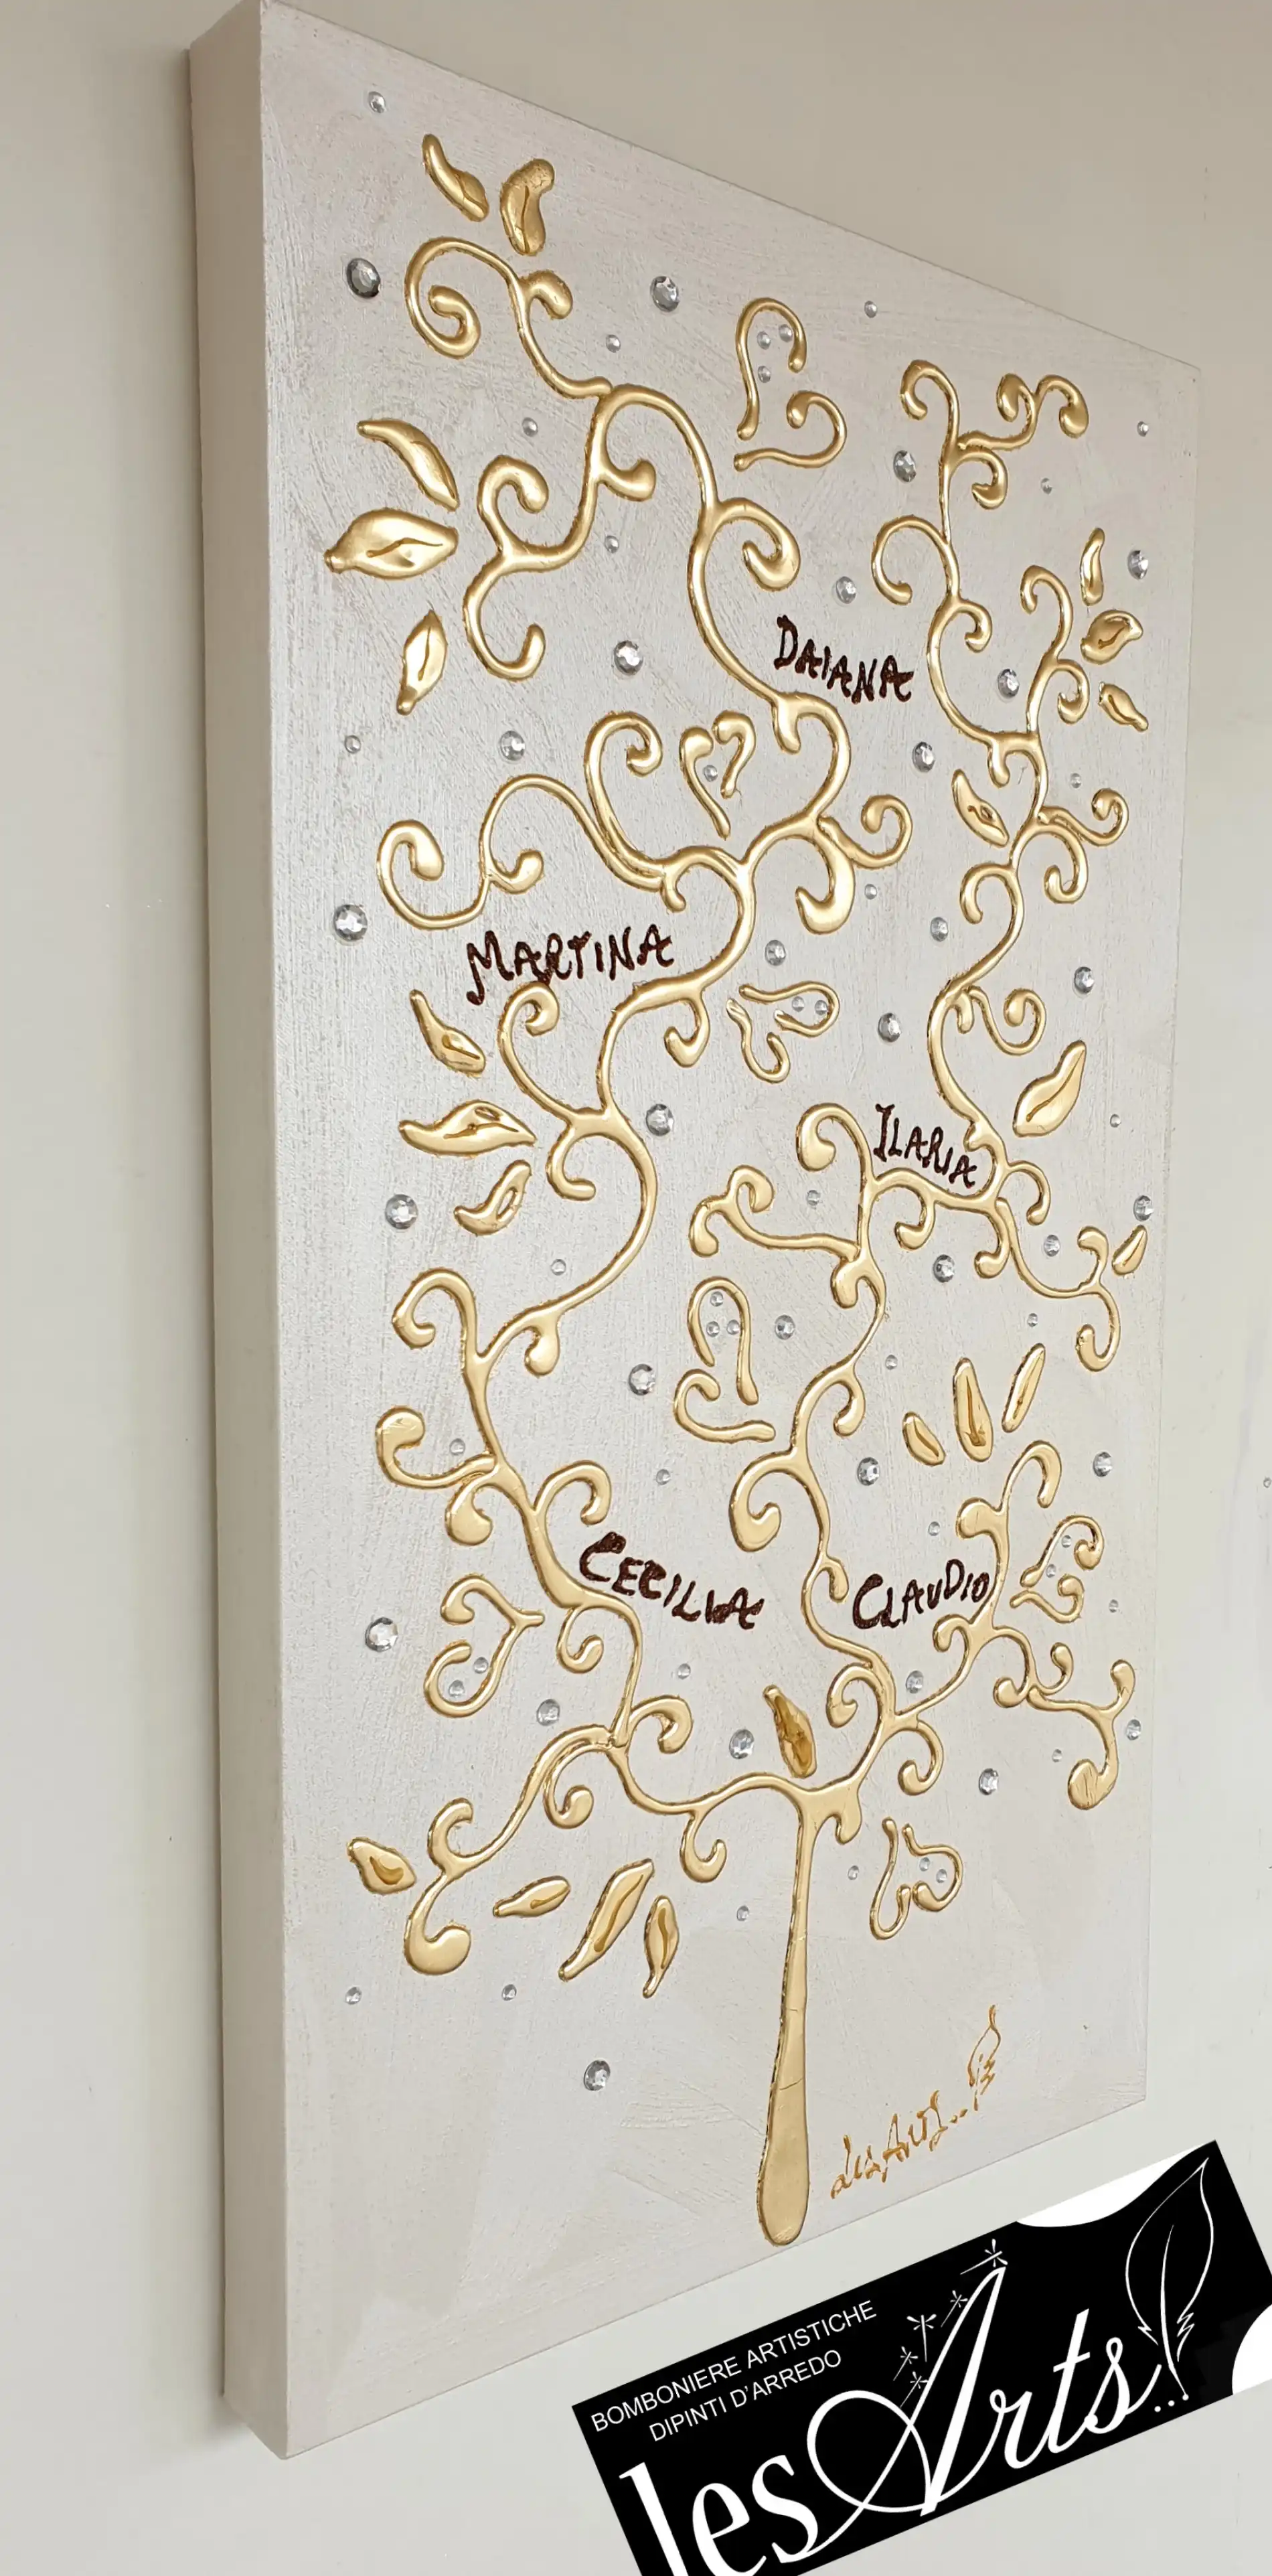 DAIANA
MARTINA
ILARIA
CECILIA
CLAUDIO
lesArts...
BOMBONIERE ARTISTICHE
DIPINTI D'ARREDO
lesArts...